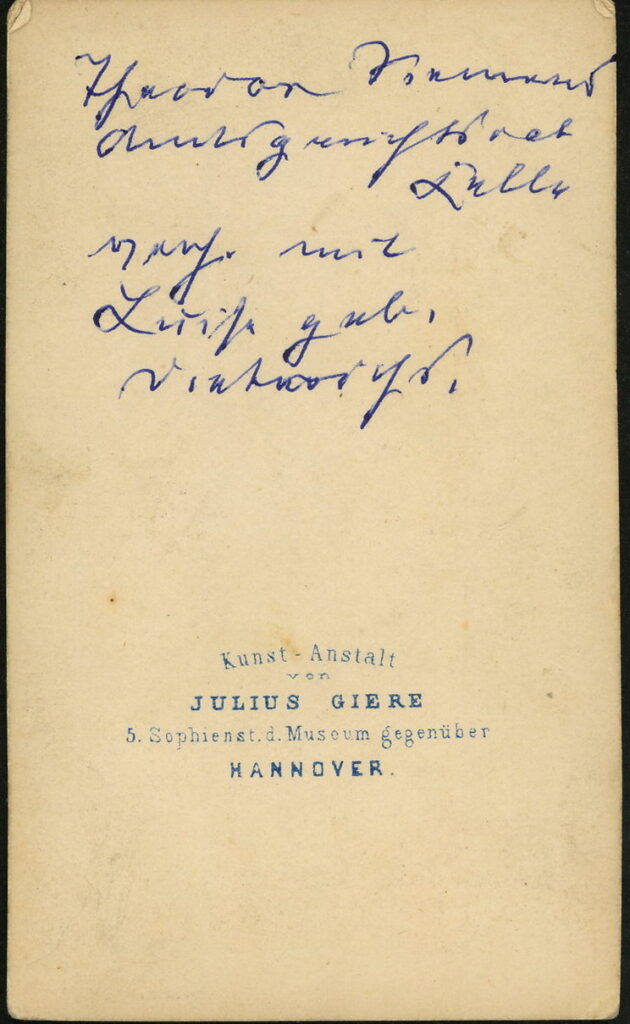 Theodor Siemens
Amtsgerichtsrat
Celle
verh. mit
Luise geb.
Kunst-Anstalt
von
JULIUS GIERE
5. Sophienst. d. Museum gegenüber
HANNOVER.